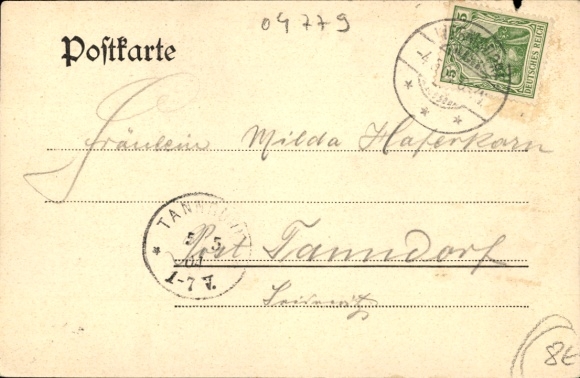 04779
Postkarte
5
5
DEUTSCHES REICH
Fräulein Milda Haferkorn
TANN
5 5
1-7 V.
Post Tanndorf
8€